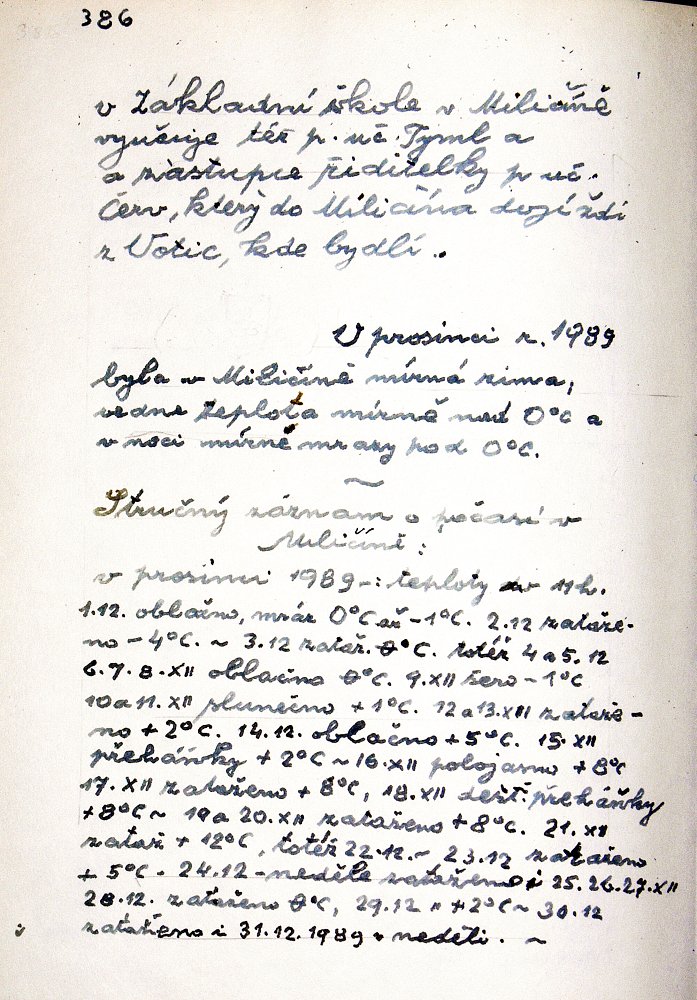 386
v Základní škole v Miličíně
vyučuje též p. uč. Tyml a
a zástupce ředitelky p uč.
Červ, který do Miličína dojíždí
z Votic, kde bydlí..
V prosinci r. 1989
byla v Miličíně mírná zima,
vedne teplota mírně nad 0°C a
v noci mírné mrazy pod 0°C.
~
Stručný záznam o počasí v
Miličíně:
v prosinci 1989-: teploty v 11h.
1.12. oblačno, mráz 0°C až -1°C. 2.12 zataže-
no -4°C. ~ 3.12 zataž. 0°C. totéž 4 a 5.12
6.7.8.XII oblačno 0°C. 9.XII šero -1°C
10 a 11. XII slunečno +1°C. 12 a 13.XIII zataže-
no +2°C. 14.12. oblačno +5°C. 15.XII
přeháňky +2°C ~ 16.XII polojasno +8°C
17.XII zataženo +8°C, 18.XII déšť. přeháňky
+8°C ~ 19 a 20.XII zataženo +8°C. 21.XII
zataž +12°C, totéž 22.12. ~, 23.12 zataženo
+5°C. 24.12 - neděle zataženo i 25.26.27.XII
28.12. zataženo 0°C, 29.12 " +2°C ~ 30.12
zataženo i 31.12.1989 v neděli. ~